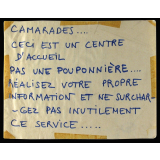 CAMARADES....
CECI EST UN CENTRE
D'ACCUEIL
PAS UNE POUPONNIÈRE....
RÉALISEZ VOTRE PROPRE
INFORMATION ET NE SURCHAR-
-GEZ PAS INUTILEMENT
CE SERVICE.....